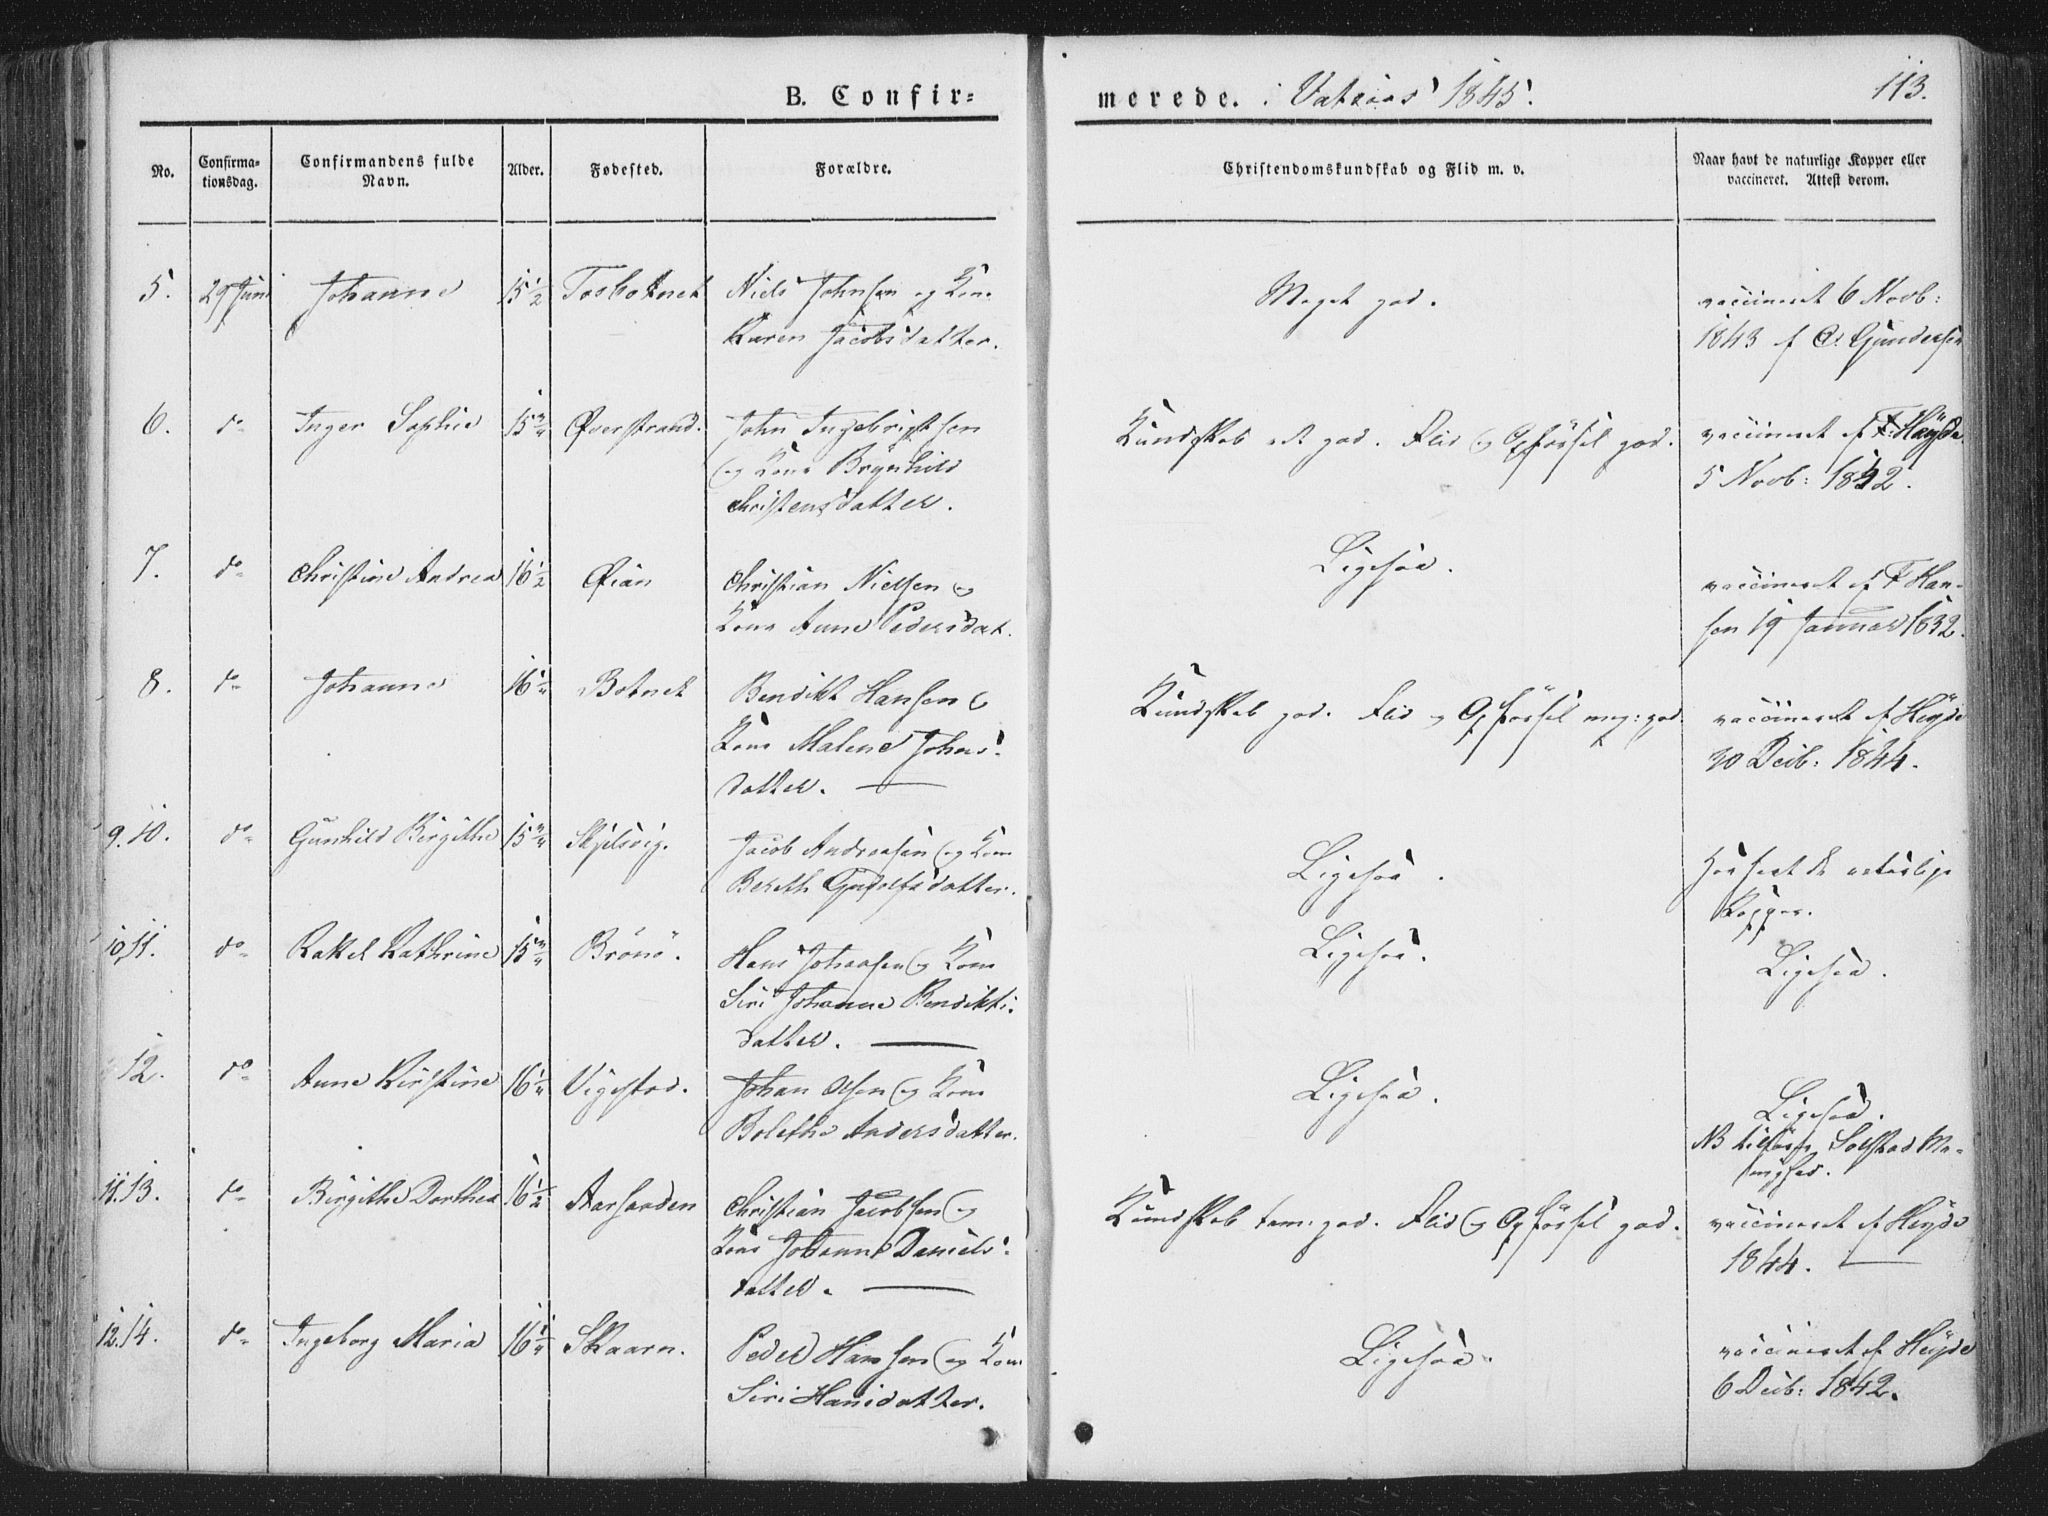 B. Confir=
merede. i 1845.
113.
No.
Confirma-
tionsdag.
Confirmandens fulde
Navn.
Alder.
Fødested.
Forældre.
Christendomskundskab og Flid m. v.
Naar havt de naturlige Kopper eller
vaccineret. Attest derom.
5. 29 Juni Johanne 15½ Tosbotnet Niels Johnsen og Kone
Karen Jacobsdatter.
Meget god.
vaccineret 6 Novb:
1843 af C. Gundersen
6. do Inger Sophie 15¾ Øverstrand. John Ingebrigtsen
og Kone Brynhild
Christensdatter.
Kundskab god. Flid og Opførsel god.
vaccineret af Heyde
5 Novb: 1842.
7. do Christine Andrea 16½ Øian Christian Nielsen og
Kone Anne Pedersdat.
Ligesaa.
vaccineret af F Han-
sen 19 Januar 1832.
8. do Johanne 16¼ Botnet Bendikt Hansen og
Kone Malene Johns-
datter.
Kundskab god. Flid og Opførsel meg: god.
vaccineret af Heyde
30 Decb: 1844.
9. 10. do Gunhild Birgithe 15¾ Skjelsvig. Jacob Andreasen og Kone
Bereth datter.
Ligesaa.
Har havt de naturlige
Kopper.
10. 11. do Rakel Kathrine 15¾ Brönö. Hans Johansen og Kone
Siri Johanne Bendikts-
datter.
Ligesaa.
Ligesaa.
12. do Anne Kirstine 16¼ Vigestad. Johan Olsen og Kone
Bolethe Andersdatter.
Ligesaa.
Ligesaa.
NB tilhører Solstad Me-
nighed.
11. 13. do Birgithe Dorthea 16½ Aarsanden Christian Jacobsen og
Kone Johanne Daniels-
datter.
Kundskab tem: god. Flid og Opførsel god.
vaccineret af Heyde
1844.
12. 14. do Ingeborg Maria 16¼ Skaarn. Peder Hansen og Kone
Siri Hansdatter.
Ligesaa.
vaccineret af Heyde
6 Decb: 1842.